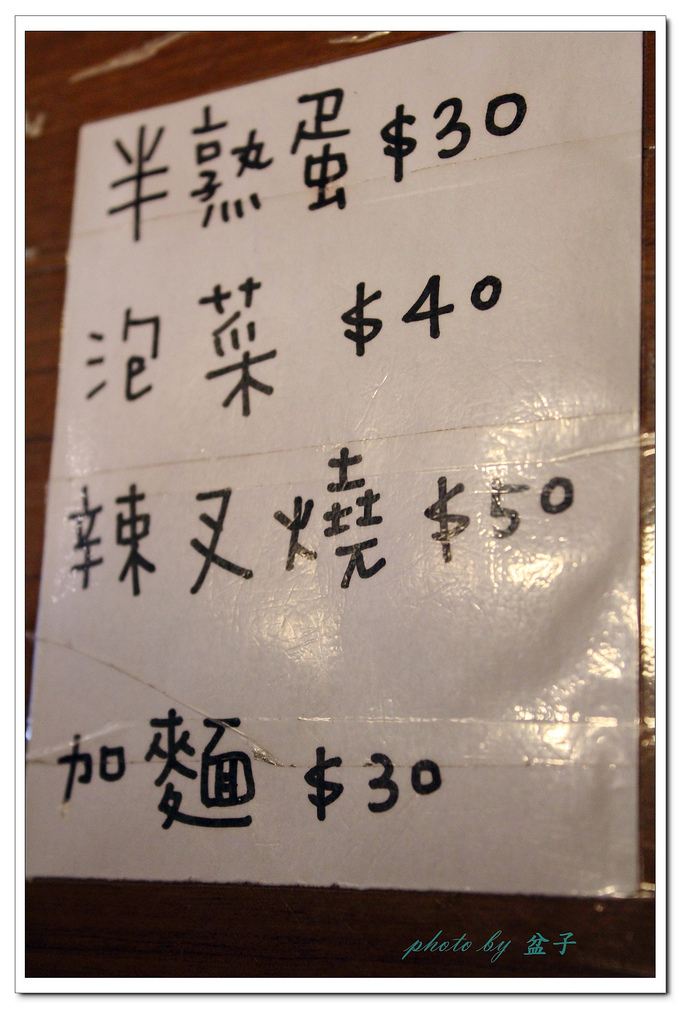 半熟蛋 $30
泡菜 $40
辣叉燒 $50
加麵 $30
photo by 盆子